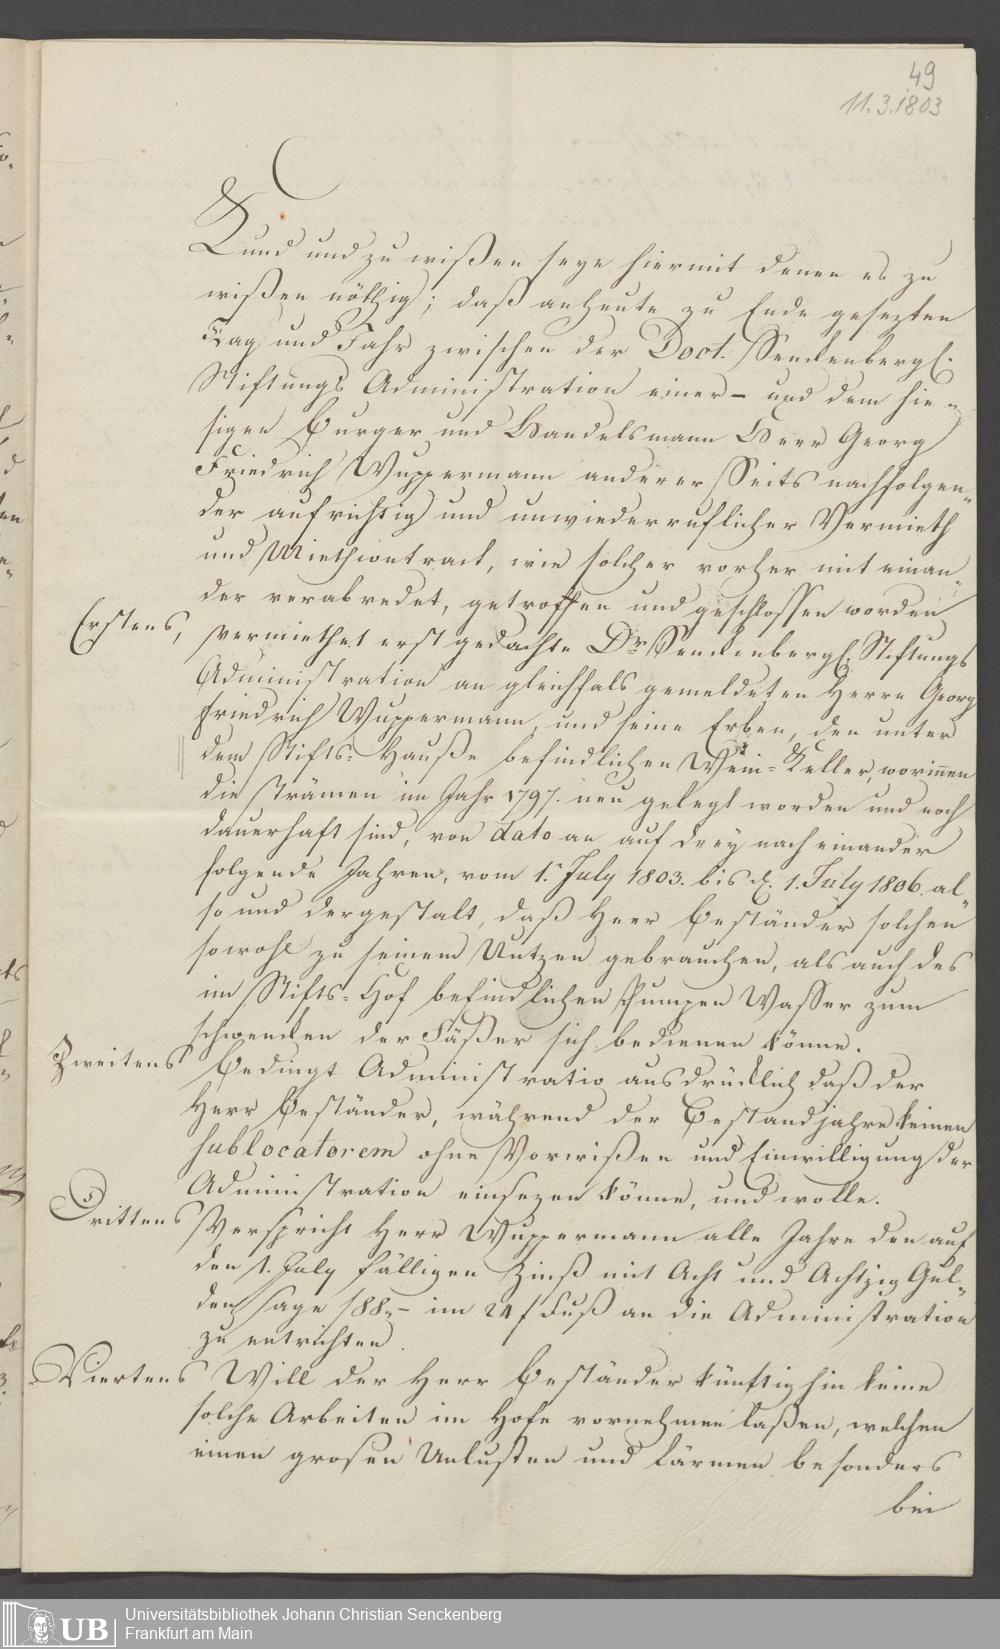 49
11.3.1803
Kund und zu wißen seye hiermit denen es zu
wißen nöthig; daß anheute zu Ende gesezten
Tag und Jahr zwischen der Doct. Senckenbergl.
Stiftungs Administration einer- und dem hie-
sigen Burger und Handelsmann Herr Georg
Friedrich Wuppermann anderer Seits nachfolgen-
der aufrichtig und unwiederruflicher Vermieth
und Miethcontract, wie solcher vorher mit einan-
der verabredet, getroffen und geschlossen worden
Erstens, vermiethet erst gedachte Dr. Senckenbergl. Stiftungs
Administration an gleichfals gemeldeten Herrn Georg
Friedrich Wuppermann, und seine Erben, den unter
dem Stifts-Hauße befindlichen Wein-Keller, worinnen
die Strämen im Jahr 1797. neu gelegt worden und noch
dauerhaft sind, von dato an auf drey nach einander
folgende Jahren, vom 1. July 1803. bis d. 1. July 1806. al-
so und dergestalt, daß Herr Beständer solchen
sowohl zu seinem Nutzen gebrauchen, als auch des
im Stifts-Hof befindlichen Pumpen Wasser zum
schwencken der Fäßer sich bedienen könne.
Zweitens Bedingt Administratio ausdrücklich daß der
Herr Beständer, während der Bestandjahre keinen
sublocatorem ohne Vorwißen und Einwilligung der
Administration einsezen könne, und wolle.
Drittens Verspricht Herr Wuppermann alle Jahre den auf
den 1. July fälligen Zinß mit Acht und Achtzig Gul-
den sage f88,,- im 24 f Fuß an die Administration
zu entrichten.
Viertens Will der Herr Beständer künftighin keine
solche Arbeiten im Hofe vornehmen laßen, welchen
einen grosen Unlusten und Lärmen besonders
bei
UB
Universitätsbibliothek Johann Christian Senckenberg
Frankfurt am Main